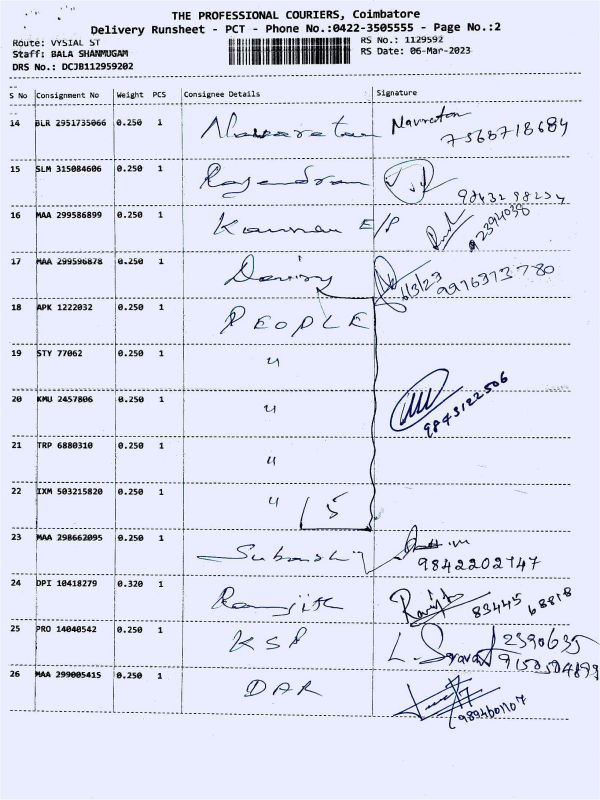 THE PROFESSIONAL COURIERS, Coimbatore
Delivery Runsheet - PCT - Phone No.:0422-3505555 - Page No.:2
Route: VYSIAL ST
RS No.: 1129592
Staff: BALA SHANMUGAM
RS Date: 06-Mar-2023
DRS No.: DCJB112959202
S No Consignment No Weight PCS Consignee Details Signature
14 BLR 2951735066 0.250 1 Navaratan Navratan
7568718684
15 SLM 315084606 0.250 1 Rajendran
9843298234
16 MAA 299586899 0.250 1 Kannan E/P
92394038
17 MAA 299596878 0.250 1
6/3/23 9976373780
18 APK 1222032 0.250 1 PEOPLE
19 STY 77062 0.250 1 "
20 KMU 2457806 0.250 1 "
9843122506
21 TRP 6880310 0.250 1 "
22 IXM 503215820 0.250 1 " 5
23 MAA 298662095 0.250 1
9842202747
24 DPI 10418279 0.320 1 Ranjith Ranjith 83445 68818
25 PRO 14040542 0.250 1 KSP 2390635
9150504893
26 MAA 299005415 0.250 1 DAR
9894601107